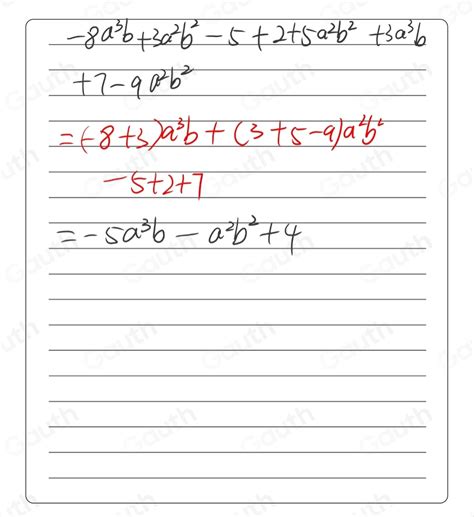 -8a³b+3a²b²-5+2+5a²b² +3a³b
+7-9a²b²
=(-8+3)a³b+(3+5-9)a²b²
-5+2+7
=-5a³b-a²b²+4